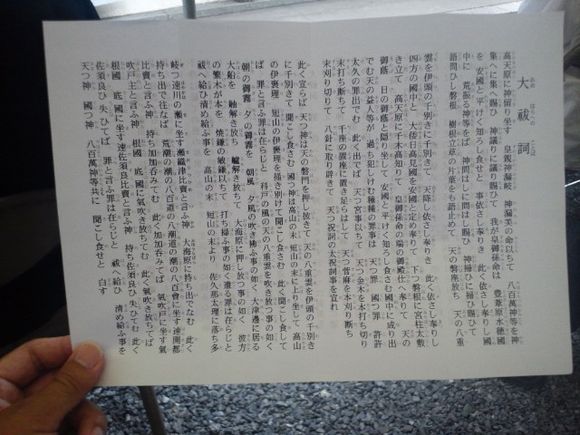 大祓詞
高天原に神留り坐す　皇親神漏岐　神漏美の命以ちて　八百萬神等を神
集へに集へ賜ひ　神議りに議り賜ひて　我が皇御孫命は　豊葦原水穂國
を　安國と平けく知ろし食せと　事依さし奉りき　此く依さし奉りし國
中に　荒振る神等をば　神問はしに問はし賜ひ　神掃ひに掃ひ賜ひて
語問ひし　磐根　樹根立草の片葉をも語止めて　天の磐座放ち　天の八重
雲を伊頭の千別きに千別きて　天降し依さし奉りき　此く依さし奉りし
四方の國中と　大倭日高見國を安國と定め奉りて　下つ磐根に宮柱太敷
き立て　高天原に千木高知りて　皇御孫命の瑞の御殿仕へ奉りて　天の
御蔭　日の御蔭と隠り坐して　安國と平けく知ろし食さむ國中に成り出
でむ天の益人等が　過ち犯しけむ種種の罪事は　天つ罪　國つ罪　許許
太久の罪出でむ　此く出でば　天つ宮事以ちて　天つ金木を本打ち切り
末打ち断ちて　千座の置座に置き足らはして　天つ菅麻を本刈り断ち
末刈り切りて　八針に取り辟きて　天つ祝詞の太祝詞事を宣れ
此く宣らば　天つ神は天の磐門を押し披きて　天の八重雲を伊頭の千別き
に千別きて　聞こし食さむ　國つ神は高山の末　短山の末に上り坐して　高山
の伊褒理　短山の伊褒理を掻き別けて聞こし食さむ　此く聞こし食してば
罪と言ふ罪は在らじと　科戸の風の天の八重雲を吹き放つ事の如く
朝の御霧　夕の御霧を　朝風　夕風の吹き拂ふ事の如く　大津邊に居る
大船を　舳解き放ち　艫解き放ちて　大海原に押し放つ事の如く　彼方
の繁木が本を　焼鎌の敏鎌以ちて　打ち掃ふ事の如く　遺る罪は在らじと
祓へ給ひ清め給ふ事を　高山の末　短山の末より　佐久那太理に落ち多
岐つ　速川の瀬に坐す瀬織津比賣と言ふ神　大海原に持ち出でなむ　此く
持ち出で往なば　荒潮の潮の八百道の八潮道の潮の八百會に坐す速開都
比賣と言ふ神　持ち加加呑みてむ　此く加加呑みてば　氣吹戸に坐す氣
吹戸主と言ふ神　根國　底國に氣吹き放ちてむ　此く氣吹き放ちてば
根國　底國に坐す速佐須良比賣と言ふ神　持ち佐須良ひ失ひてむ　此く
佐須良ひ失ひてば　罪と言ふ罪は在らじと　祓へ給ひ　清め給ふ事を
天つ神　國つ神　八百萬神等共に　聞こし食せと　白す